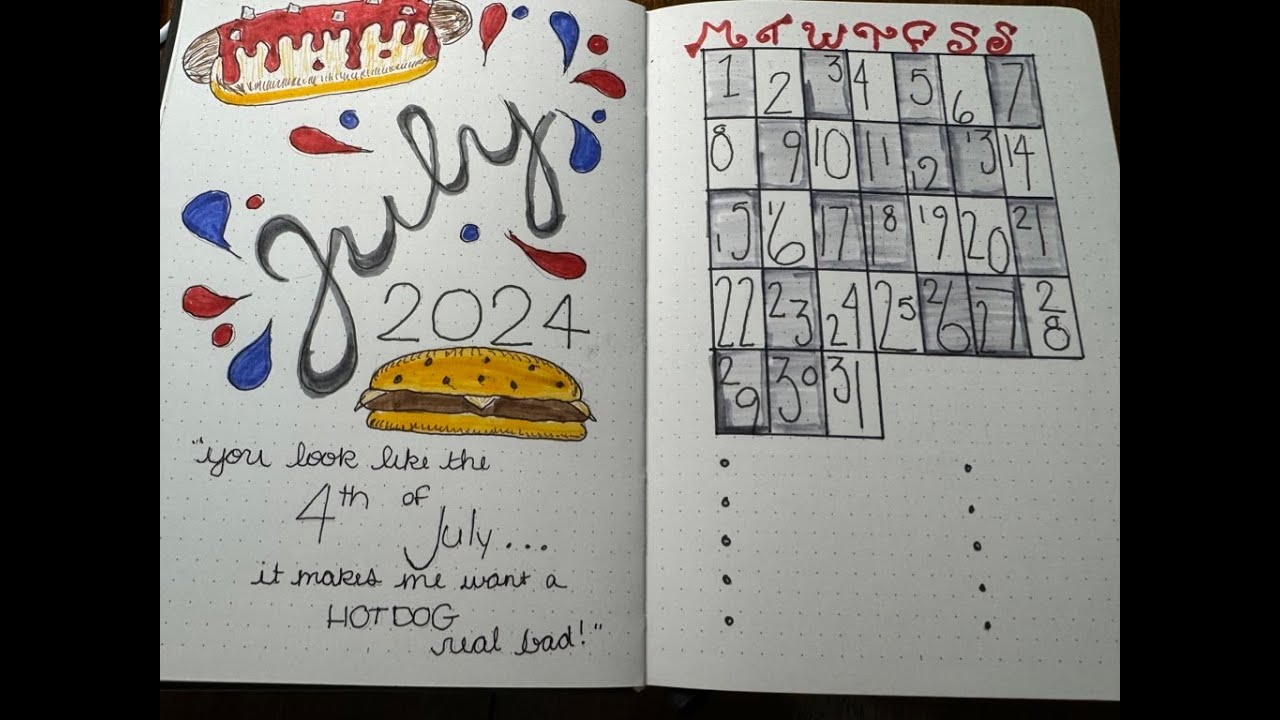 July
2024
"you look like the
4th of
July...
it makes me want a
HOTDOG
real bad!"
M T W T F S S
1 2 3 4 5 6 7
8 9 10 11 12 13 14
15 16 17 18 19 20 21
22 23 24 25 26 27 28
29 30 31